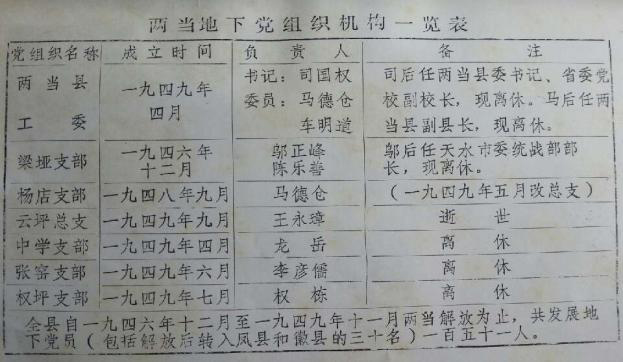 两当地下党组织机构一览表
党组织名称 成立时间 负责人 备注
两当县工委 一九四九年四月 书记：司国权 司后任两当县委书记、省委党
委员：马德仓 校副校长，现离休。马后任两
车明道 当县副县长，现离休。
梁垭支部 一九四六年十二月 邬正峰 邬后任天水市委统战部部
陈乐善 长，现离休。
杨店支部 一九四八年九月 马德仓 （一九四九年五月改总支）
云坪总支 一九四九年九月 王永璋 逝世
中学支部 一九四九年四月 龙岳 离休
张窑支部 一九四九年六月 李彦儒 离休
权坪支部 一九四九年七月 权栋 离休
全县自一九四六年十二月至一九四九年十一月两当解放为止，共发展地
下党员（包括解放后转入凤县和徽县的三十名）一百五十一人。